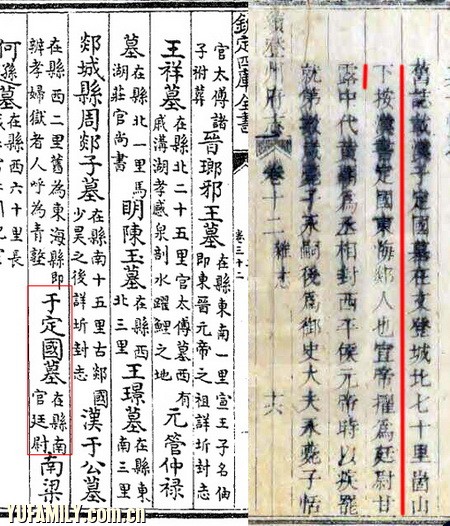 舊誌載漢于定國墓在文登城北七十里崮山
下按漢書定國東海郯人也宣帝擢為廷尉甘
露中代黃霸為丞相封西平侯元帝時以疾罷
就第數歲薨子永嗣後為御史大夫永薨子恬
州府志 卷十二 雜志 十六
欽定四庫全書 卷三十二
官太傅諸子祔葬 晉瑯邪王墓 在縣東南一里宣王子名伷即東晉元帝之祖詳圻封志
王祥墓 在縣北二十五里官太傅墓西有戚溝湖孝感泉剖水躍鯉之地 元管仲祿
墓 在縣北一里馬湖莊官尚書 明陳玉墓 在縣西北三里 王璟墓 在縣東南三里
郯城縣周郯子墓 在縣南十五里古郯國少昊之後詳圻封志 漢于公墓
在縣西二里舊為東海縣即辨孝婦獄者人呼為青塋 于定國墓 在縣南官廷尉 南梁
何遜墓 在縣西六十里長
YUFAMILY.com.cn